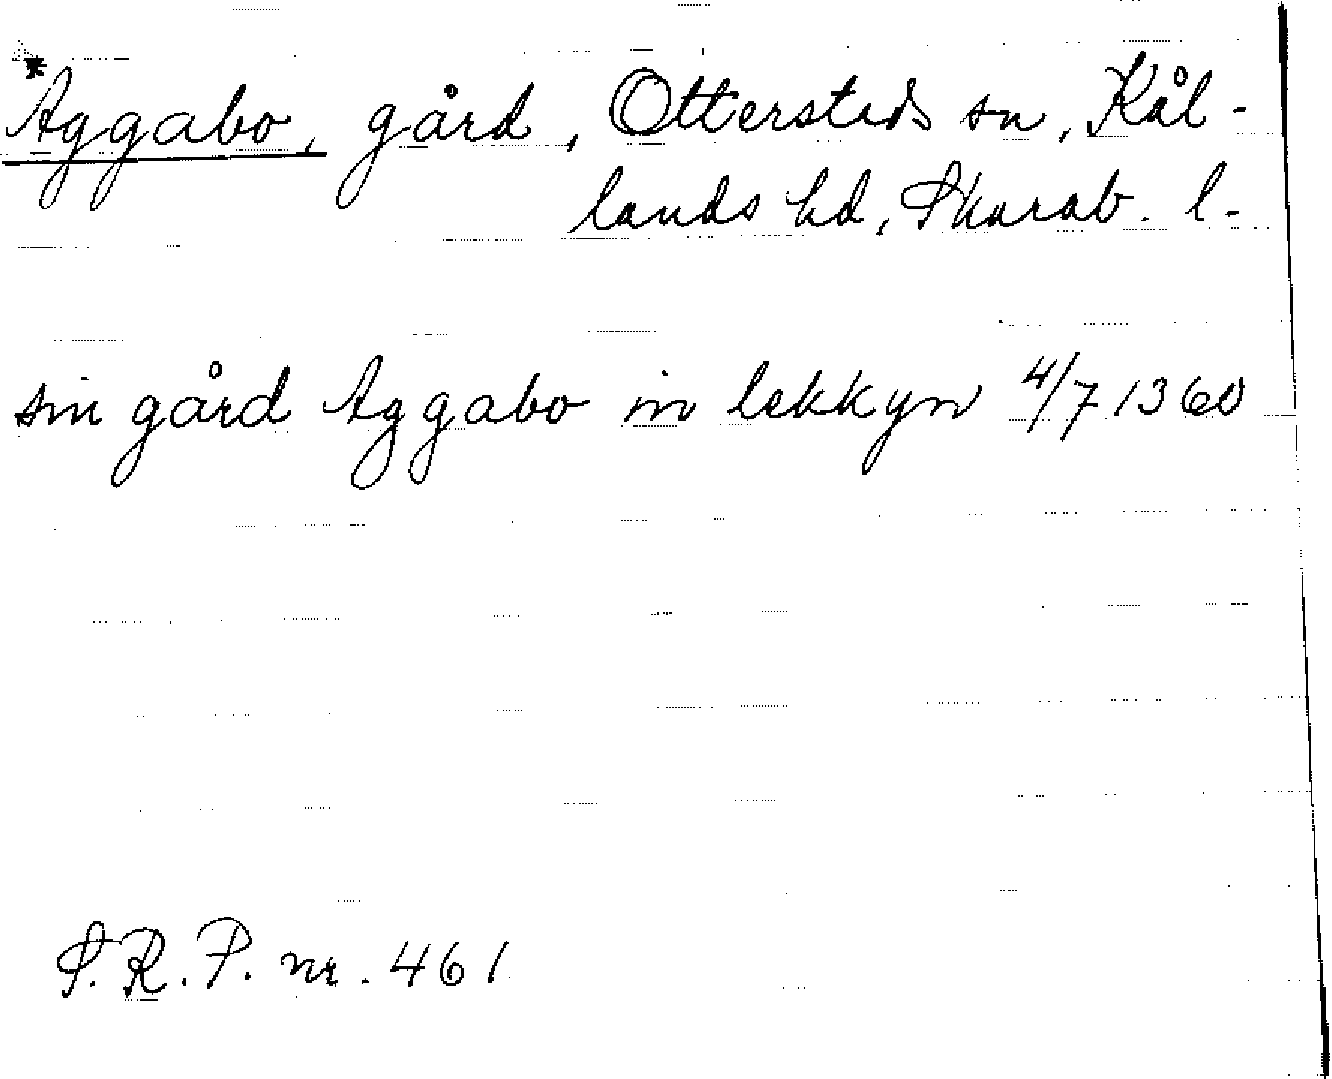 *Aggabo, gård, Ottersteds sn, Kål-
lands hd, Skarab. l.
sin gård Aggabo in lekkyn 4/7 1360
S.R.P. nr. 461